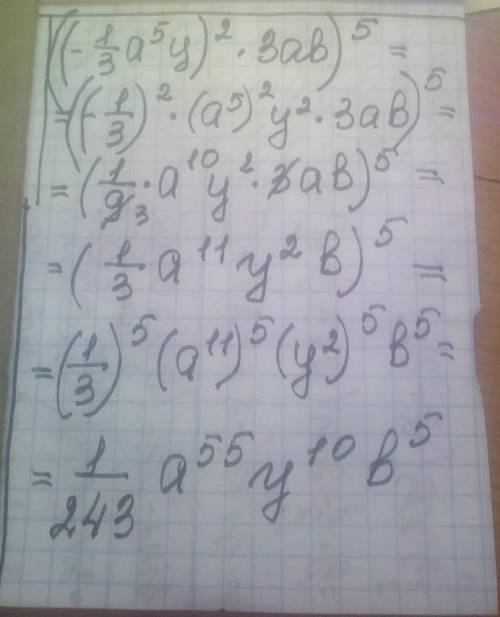 ((-1/3 a⁵y)² · 3ab)⁵ =
= ((-1/3)² · (a⁵)² y² · 3ab)⁵ =
= (1/9 3 · a¹⁰ y² · 3ab)⁵ =
= (1/3 a¹¹ y² b)⁵ =
= (1/3)⁵ (a¹¹)⁵ (y²)⁵ b⁵ =
= 1/243 a⁵⁵ y¹⁰ b⁵